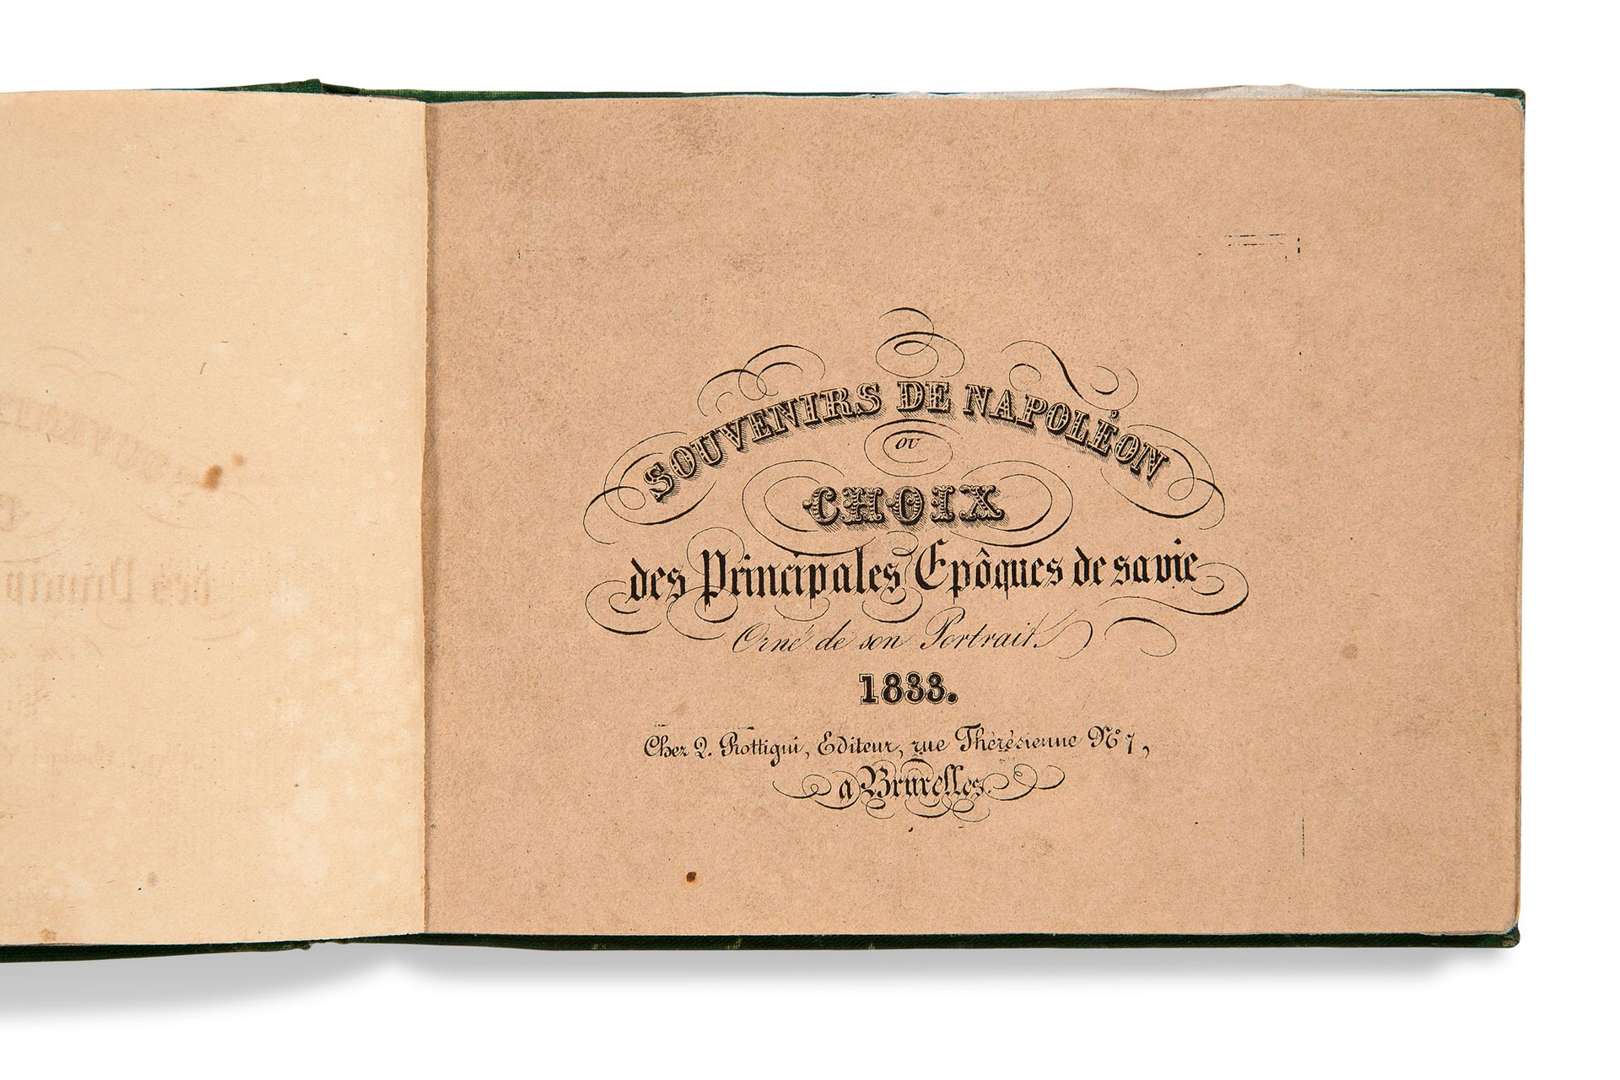 SOUVENIRS DE NAPOLÉON
OU
CHOIX
des Principales Epôques de sa vie
Orné de son Portrait
1833.
Chez Q. Rottigni, Editeur, rue Thérésienne N° 7,
a Bruxelles.